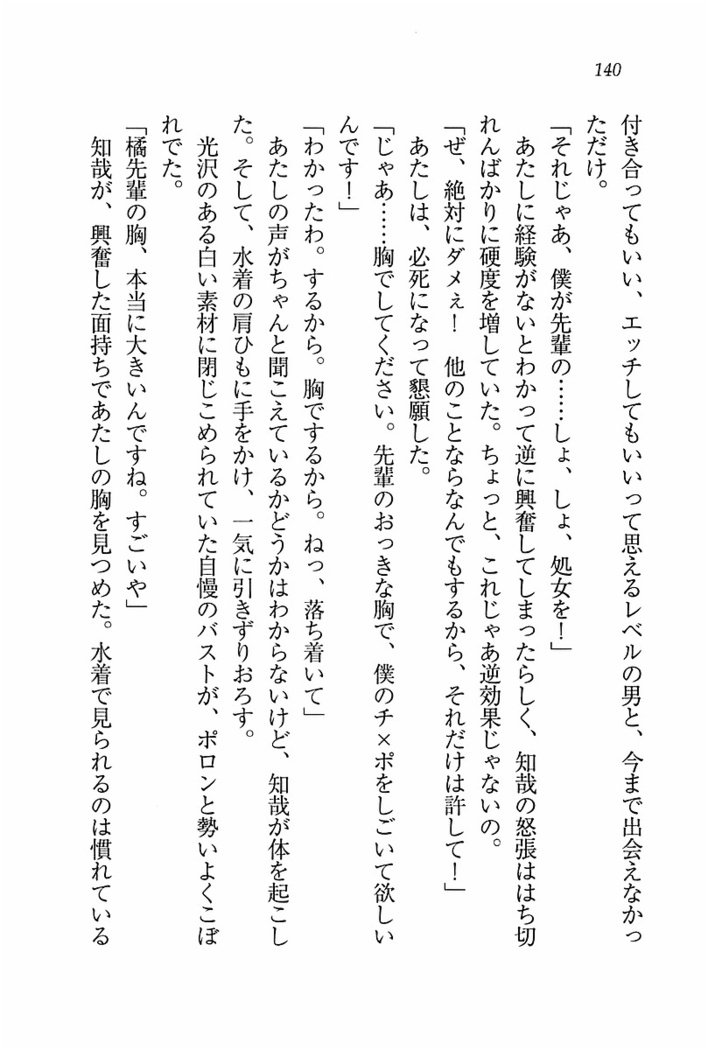 140
付き合ってもいい、エッチしてもいいって思えるレベルの男と、今まで出会えなかっ
ただけ。
「それじゃあ、僕が先輩の……しょ、しょ、処女を！」
あたしに経験がないとわかって逆に興奮してしまったらしく、知哉の怒張ははち切
れんばかりに硬度を増していた。ちょっと、これじゃあ逆効果じゃないの。
「ぜ、絶対にダメぇ！　他のことならなんでもするから、それだけは許して！」
あたしは、必死になって懇願した。
「じゃあ……胸でしてください。先輩のおっきな胸で、僕のチ×ポをしごいて欲しい
んです！」
「わかったわ。するから。胸でするから。ねっ、落ち着いて」
あたしの声がちゃんと聞こえているかどうかはわからないけど、知哉が体を起こし
た。そして、水着の肩ひもに手をかけ、一気に引きずりおろす。
光沢のある白い素材に閉じこめられていた自慢のバストが、ポロンと勢いよくこぼ
れでた。
「橘先輩の胸、本当に大きいんですね。すごいや」
知哉が、興奮した面持ちであたしの胸を見つめた。水着で見られるのは慣れている